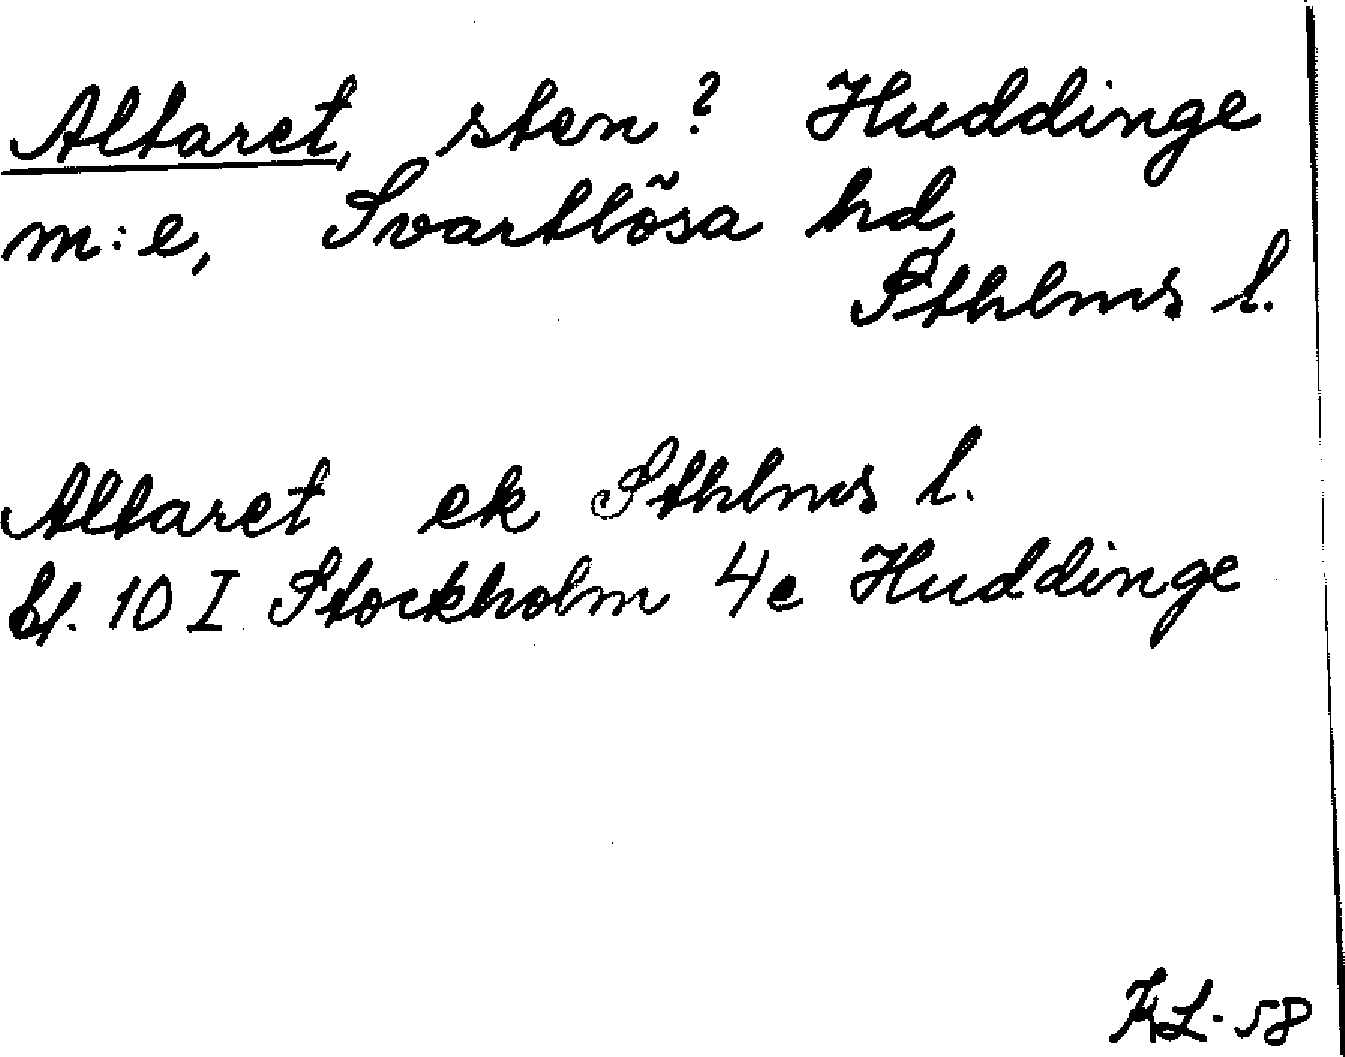 Altaret, sten? Huddinge
m:e, Svartlösa hd,
Sthlms l.
Altaret ek Sthlms l.
bl. 10 I Stockholm 4e Huddinge
KL-58